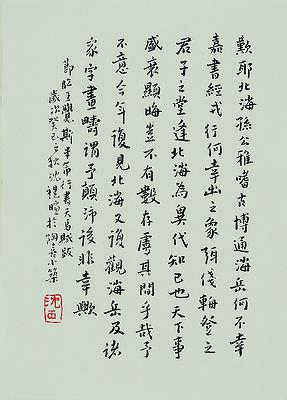 歎耶北海孫公雅嗜古博通海岳何不幸
嘉書經戎行何幸出之象弭倭輈登之
君子之堂逢北海為異代知己也天下事
盛衰顯晦豈不有數存焉其間乎哉予
不意今年復見北海又復觀海岳及諸
家字畫疇謂予顛沛後非幸歟
節臨王覺斯米芾行書天馬賦跋
歲次癸巳之秋沈程於陶小築
沈